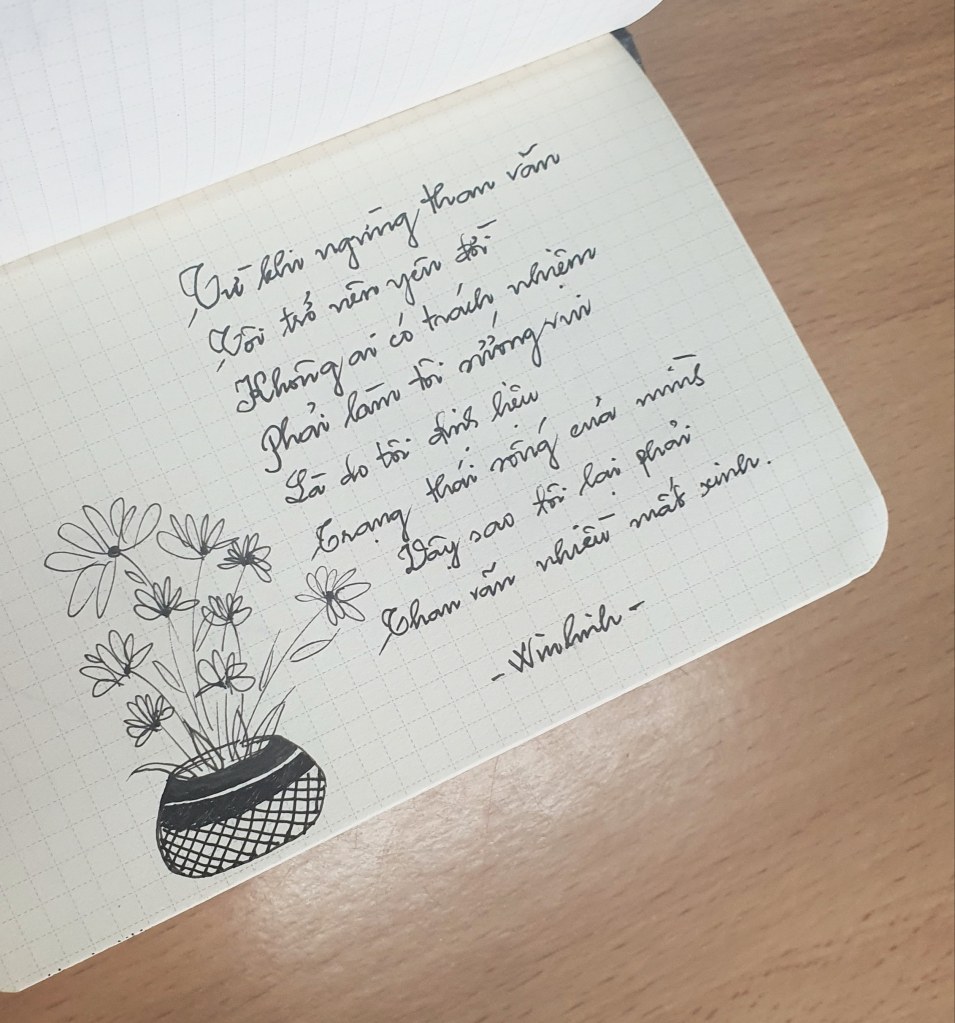 Từ khi ngừng than vãn
Tôi trở nên yêu đời
Không ai có trách nhiệm
Phải làm tôi sướng vui
Là do tôi đinh liệu
Trạng thái sống của mình
Vậy sao tôi lại phải
Than vãn nhiều mất xinh.
- Winlinh -